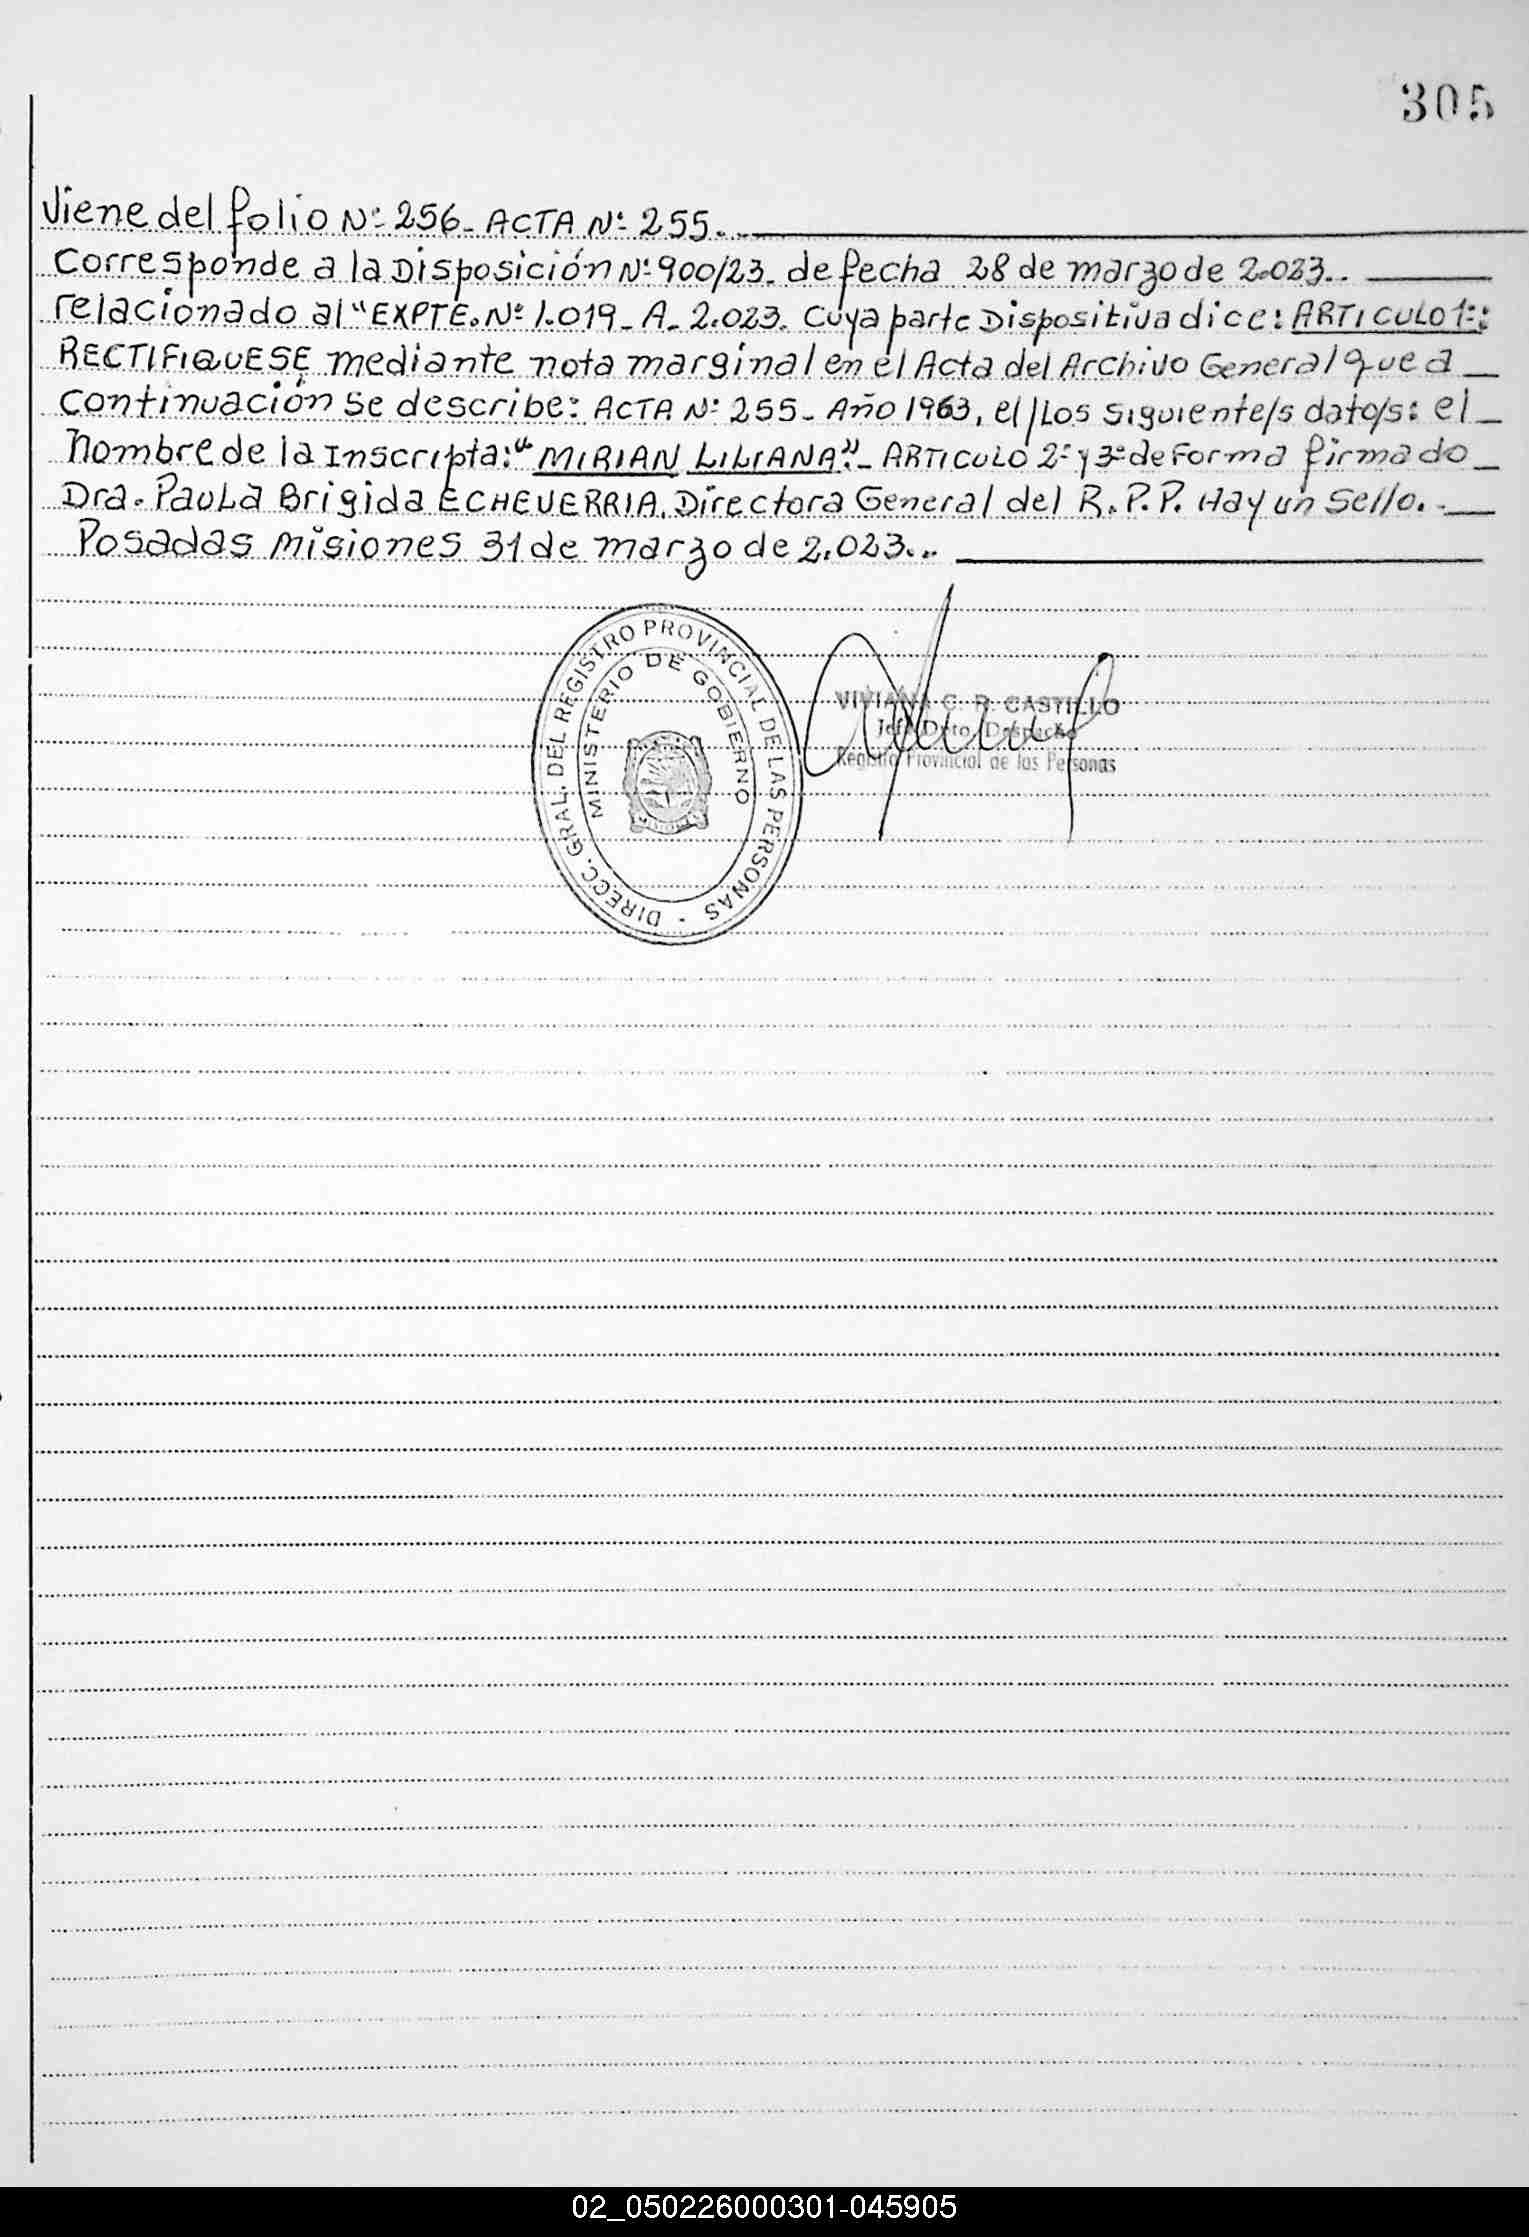 305
Viene del folio Nº 256- ACTA Nº 255.-
Corresponde a la Disposición Nº 900/23. de fecha 28 de marzo de 2.023..
relacionado al "EXPTE. Nº 1.019- A- 2.023. Cuya parte Dispositiva dice: ARTICULO 1º:
RECTIFIQUESE mediante nota marginal en el Acta del Archivo General que a
Continuación se describe: ACTA Nº 255- Año 1963, el/Los siguiente/s dato/s: el
nombre de la Inscripta: "MIRIAN LILIANA".- ARTICULO 2º y 3º de Forma firmado
Dra. Paula Brigida ECHEVERRIA. Directora General del R.P.P. Hay un Sello.-
Posadas Misiones 31 de marzo de 2.023..
DIRECC. GRAL. DEL REGISTRO PROVINCIAL DE LAS PERSONAS -
MINISTERIO DE GOBIERNO
VIVIANA C. R. CASTILLO
Jefe Dpto. Despacho
Registro Provincial de las Personas
02_050226000301-045905